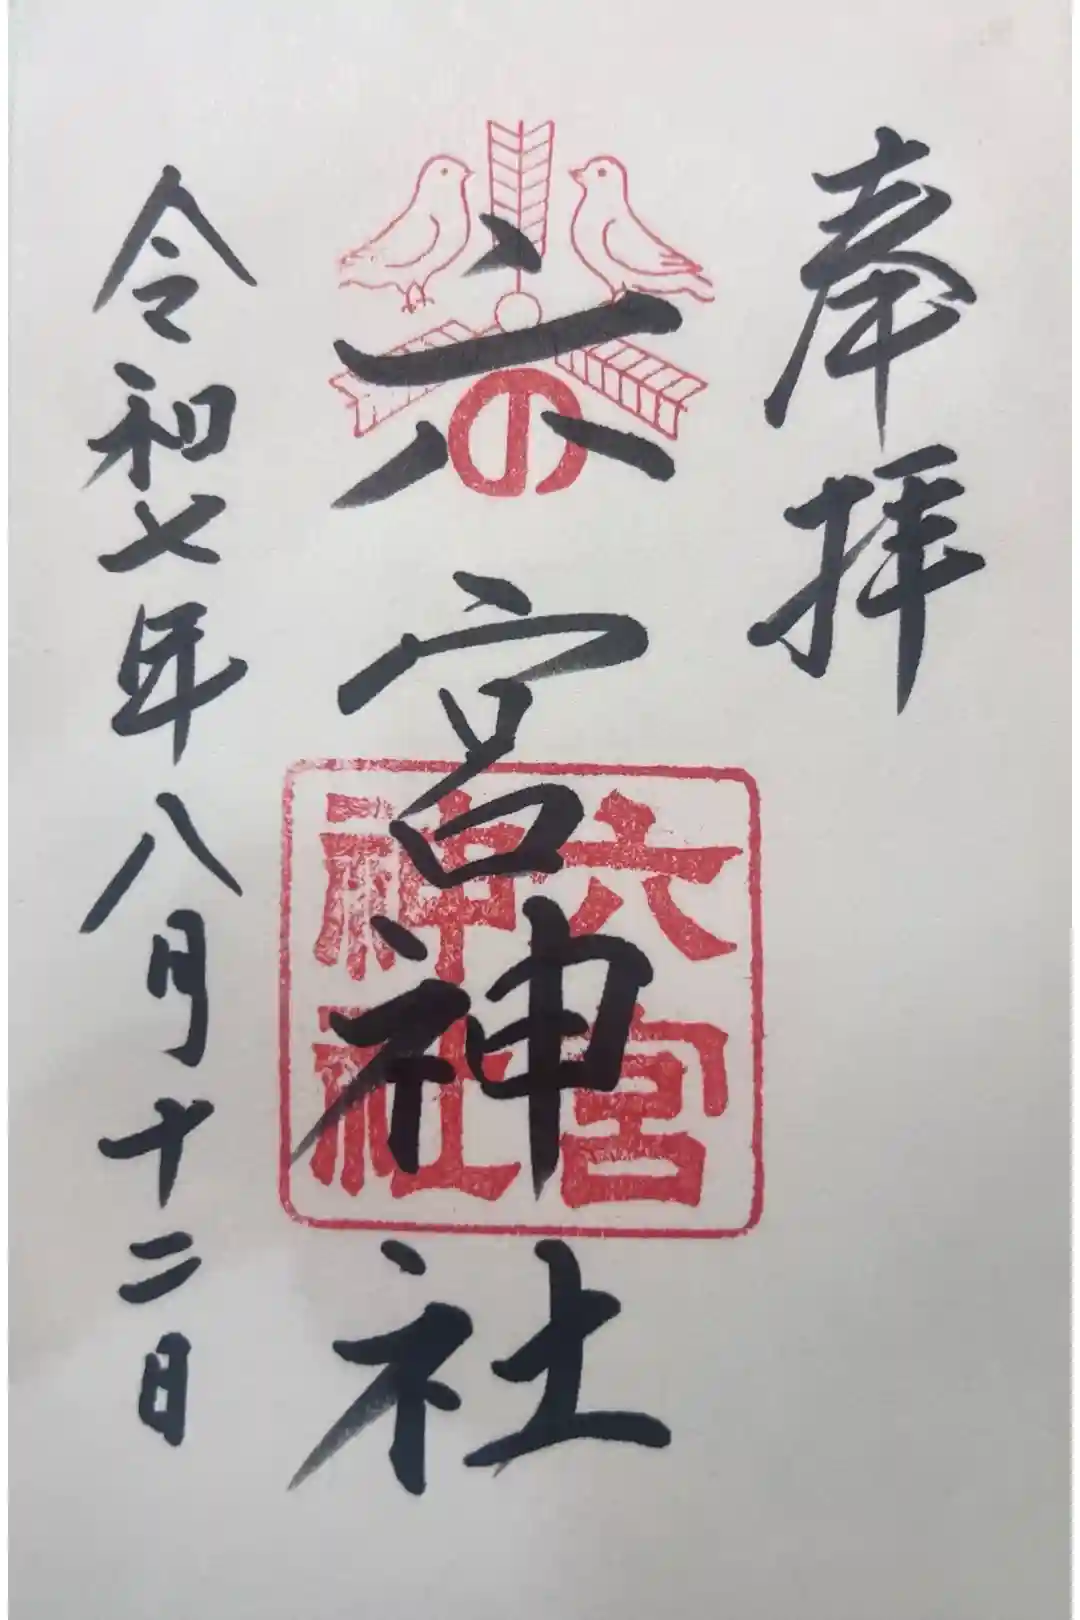 奉拝
六宮神社
の
六宮
神社
令和七年八月十二日